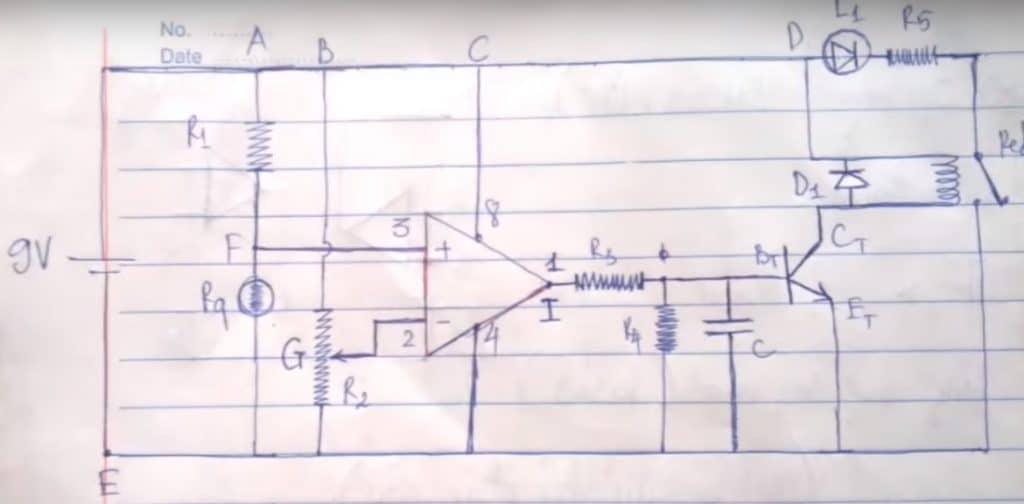 No.
Date
A
B
C
D
L1
R5
R1
D1
3
8
9V
F
+
1
R3
BT
CT
Rq
I
ET
G
2
-
4
R4
C
R2
E